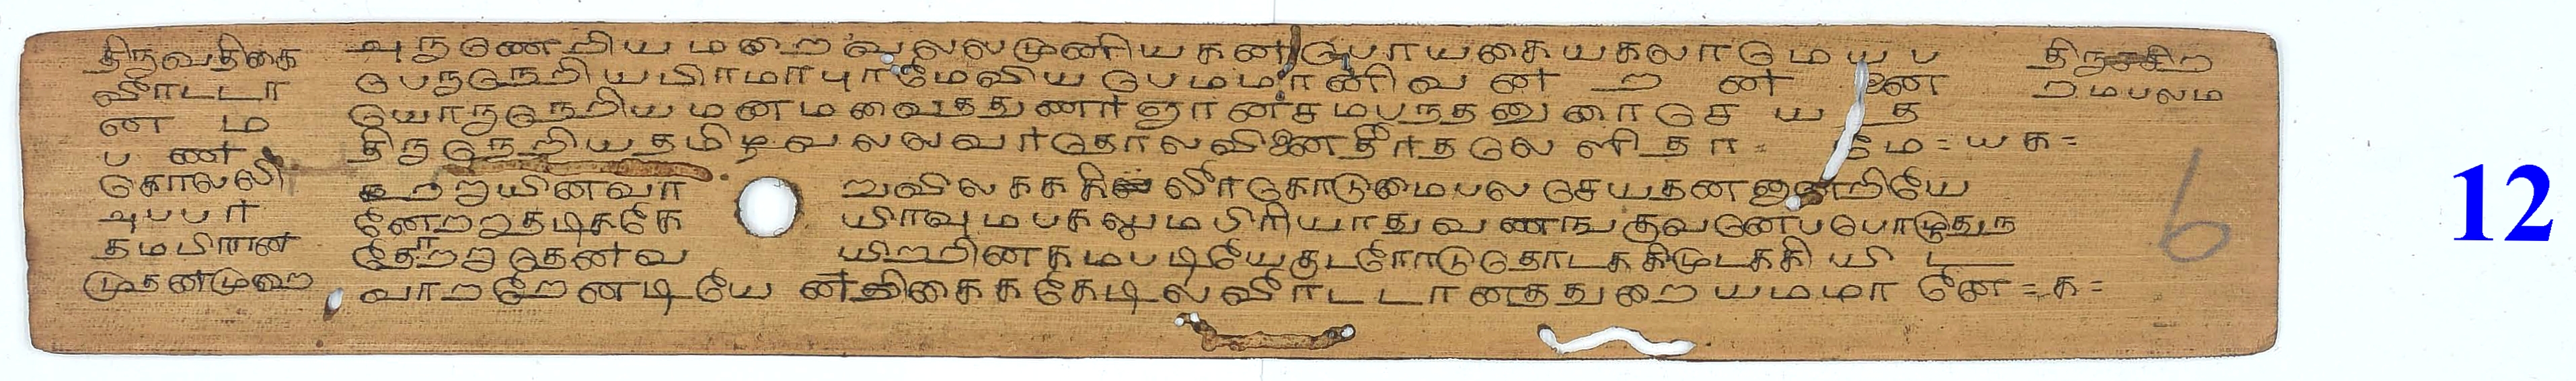 திருவதிகை
வீரட்டா
ன ம
பண
கொலலி
அபபர
தமபிரான
முதனமுறை
அருணெறிய மறைவலல முனியகன பொயகையகலாடுமெ ய ப
பெருநெறிய பிரமாபுரமெவிய பெமமானிவ ன ற ன னை
யொருநெறிய மனமவைததுணர ஞானசமபநதனுரைசெ ய த
திருநெறியதமிழவலலவர தொலவினைதீரதலெ ளிதா= மெ=யக=
கூறறயினவா றுவிலககிலீர கொடுமைபல செயதனநானறியெ
னெறறகடிககெ யிரவுமபகலுமபிரியாதுவணஙகுவனெபபொழுது
தொறறாதெனவ யிறறினகமபடியெகுடரொடுதொடககிமுடககி யி ட
வாறறெனடியெ னதிகைககெடில வீரடடானததுறை யமமா னெ=க=
திருசசிற
றமபலம
6
12